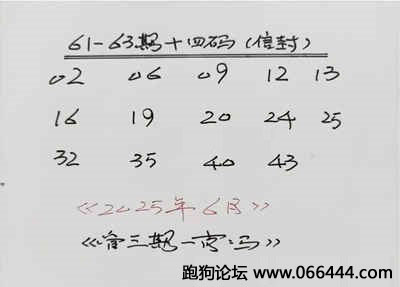 61-63期十四码(信封)
02 06 09 12 13
16 19 20 24 25
32 35 40 43
《2025年6月》
《管三期一字:马》
跑狗论坛 www.066444.com